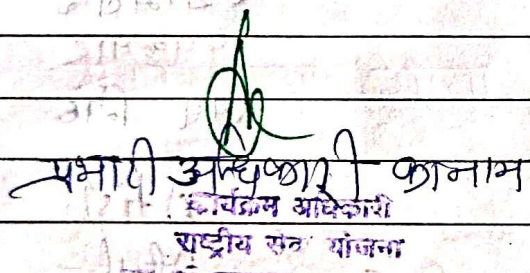 प्रभारी अधिकारी का नाम
कार्यक्रम अधिकारी
राष्ट्रीय सेवा योजना